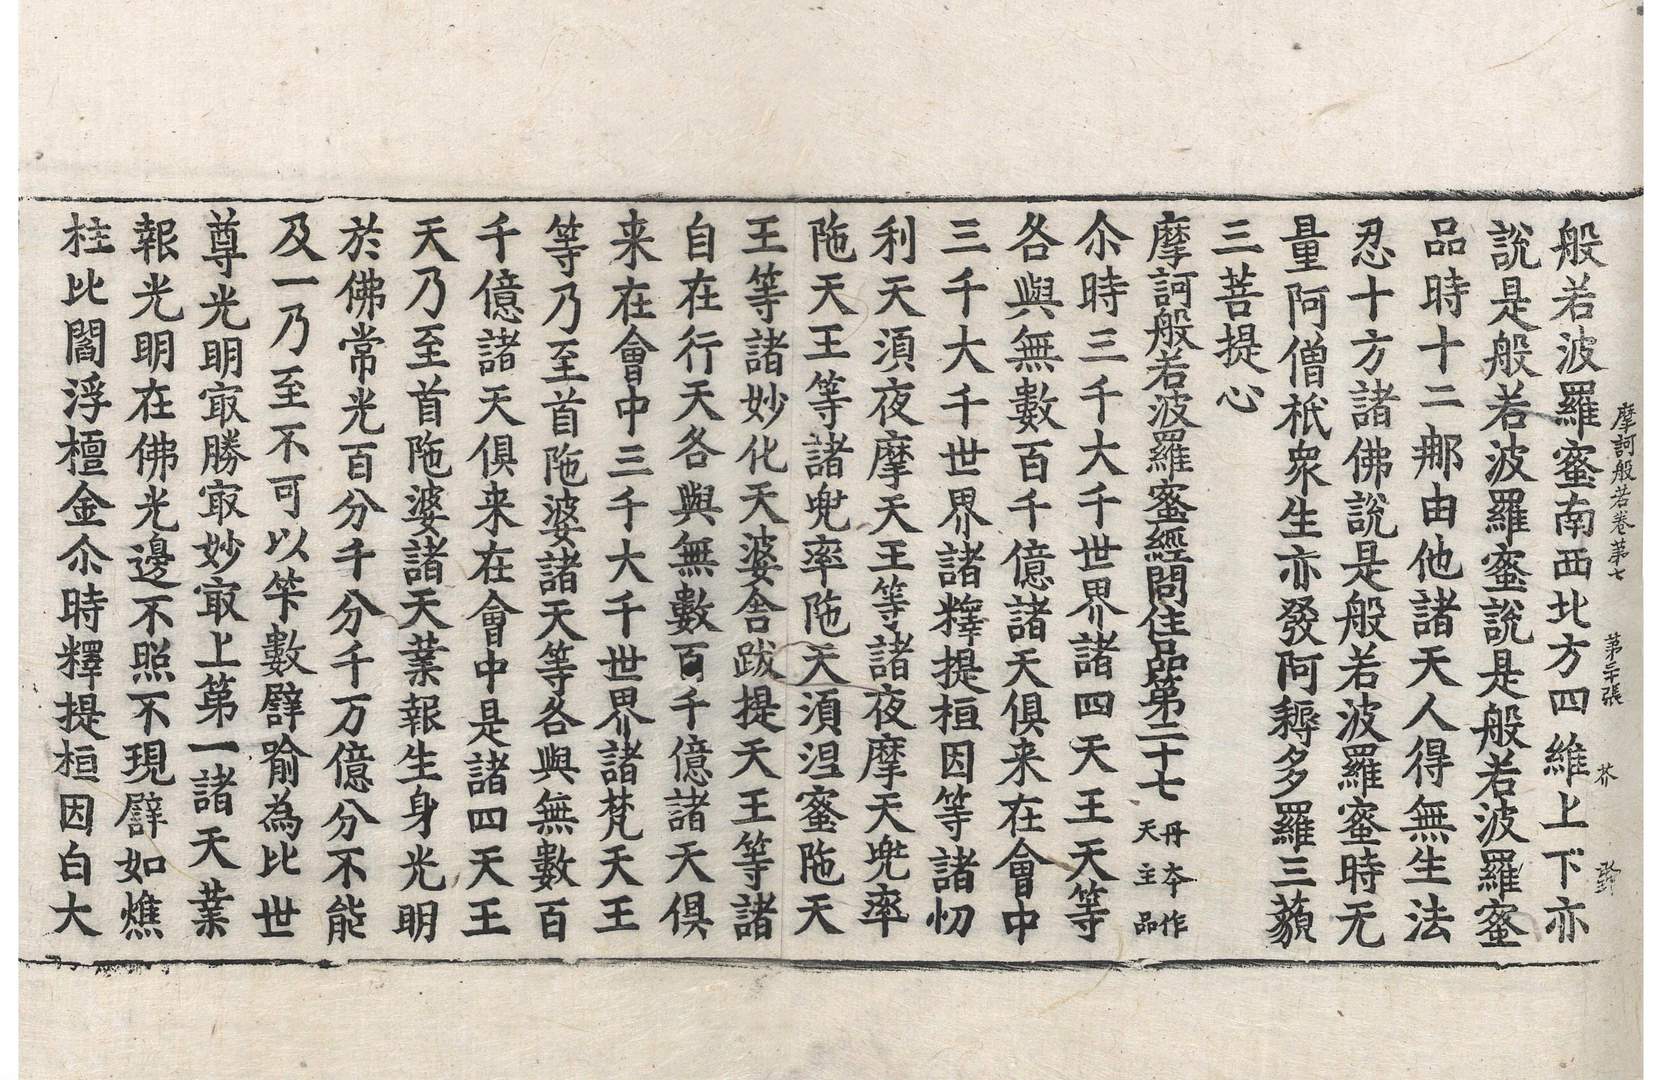 摩訶般若卷苐七　苐二十張　芥
般若波羅蜜南西北方四維上下亦
說是般若波羅蜜說是般若波羅蜜
品時十二那由他諸天人得無生法
忍十方諸佛說是般若波羅蜜時无
量阿僧祇衆生亦發阿耨多羅三藐
三菩提心
摩訶般若波羅蜜經問住品第二十七 丹本作天主品
尒時三千大千世界諸四天王天等
各與無數百千億諸天俱来在會中
三千大千世界諸釋提桓因等諸忉
利天須夜摩天王等諸夜摩天兜率
陁天王等諸兜率陁天須涅蜜陁天
王等諸妙化天婆舍跋提天王等諸
自在行天各與無數百千億諸天俱
来在會中三千大千世界諸梵天王
等乃至首陁婆諸天等各與無數百
千億諸天俱来在會中是諸四天王
天乃至首陁婆諸天業報生身光明
於佛常光百分千分千万億分不能
及一乃至不可以笇數譬喻為比世
尊光明㝡勝㝡妙㝡上第一諸天業
報光明在佛光邊不照不現譬如燋
柱比閻浮檀金尒時釋提桓因白大